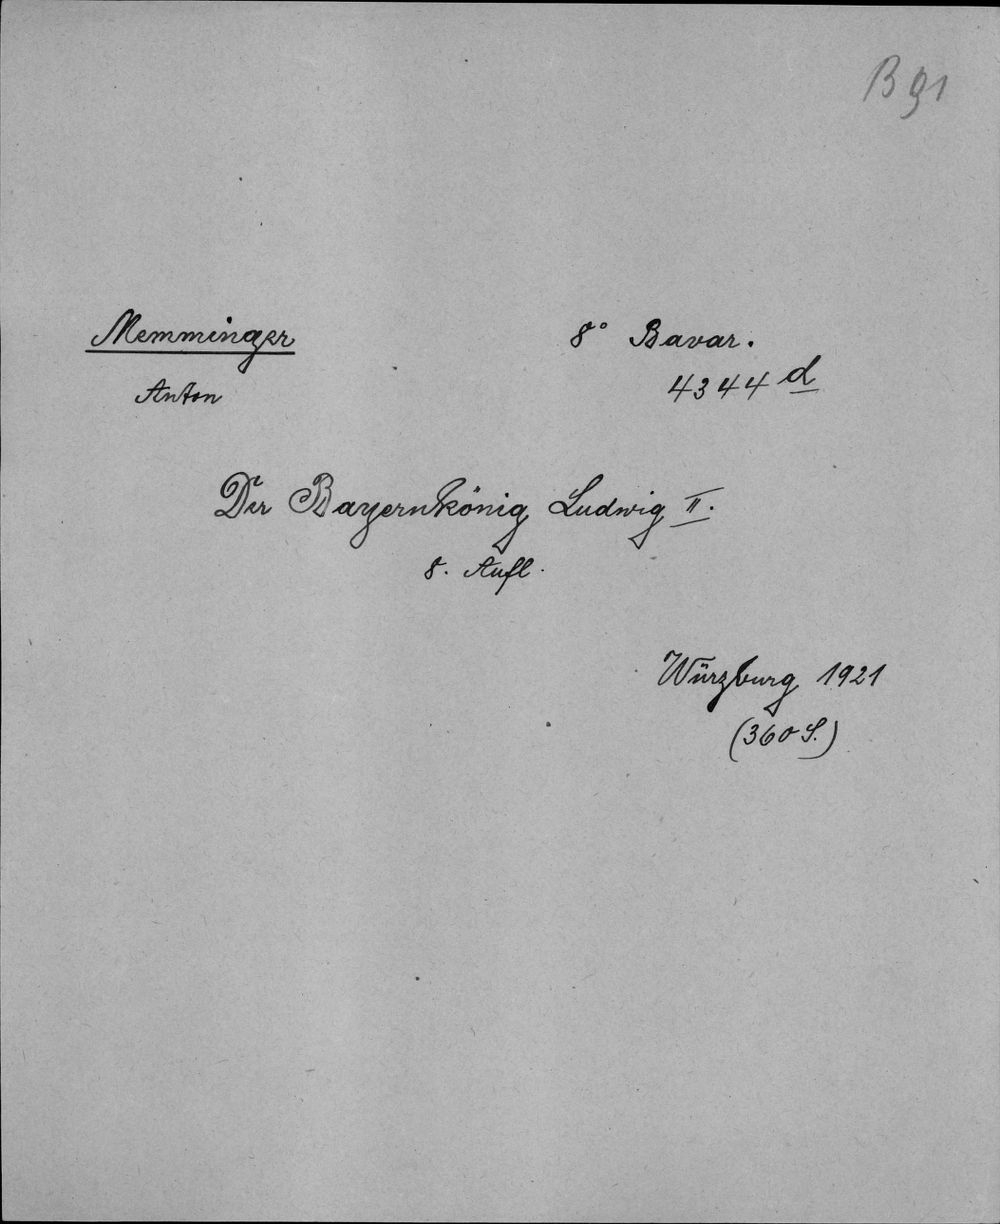 B 91
Memminger 8° Bavar.
Anton 4344 d
Der Bayernkönig Ludwig II.
8. Aufl.
Würzburg 1921
(360 S.)